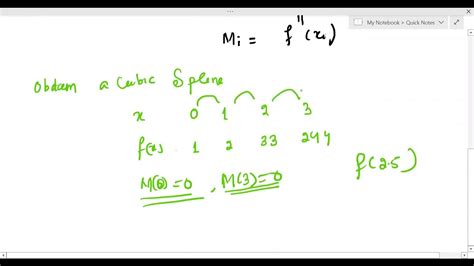 My Notebook > Quick Notes
Mi = f"(xi)
Obtain a Cubic Spline
x 0 1 2 3
f(x) 1 2 33 244
f(2.5)
M(0)=0 , M(3)=0